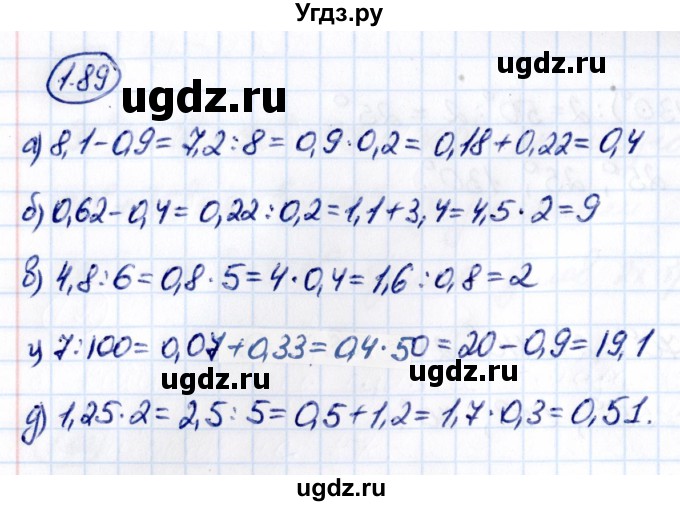 Угдз.ру
1.89
ugdz.ru ugdz.ru
а) 8,1-0,9= 7,2:8= 0,9·0,2= 0,18+0,22=0,4
б) 0,62-0,4= 0,22:0,2=1,1+3,4=4,5·2=9
в) 4,8:6=0,8·5=4·0,4=1,6:0,8=2
г) 7:100= 0,07+0,33=0,4·50=20-0,9=19,1
ugdz.ru ugdz.ru
д) 1,25·2= 2,5:5=0,5+1,2=1,7·0,3=0,51.
ugdz.ru